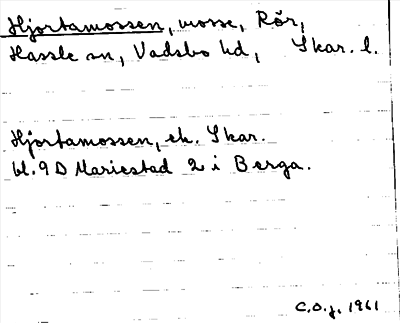 Hjortamossen, mosse, Rör,
Hassle sn, Vadsbo hd, Skar. l.
Hjortamossen, ek. Skar.
bl. 9 D Mariestad 2 i Berga.
C.O.j. 1961